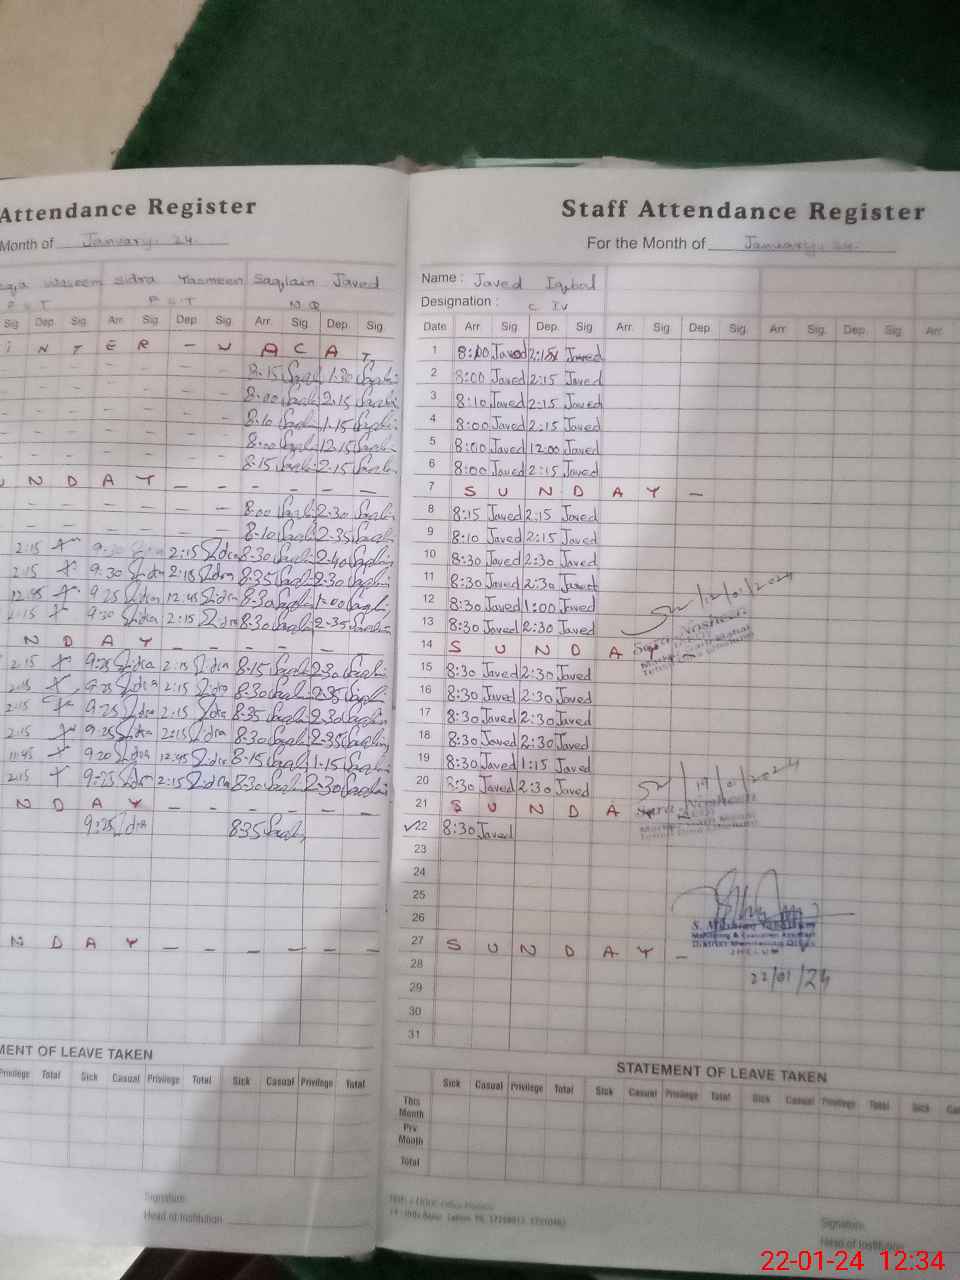 Attendance Register
Month of January. 24.
Waseem Sidra Yasmeen Saqlain Javed
P S T N.Q
Sig. Dep. Sig. Arr. Sig. Dep. Sig. Arr. Sig. Dep. Sig.
I N T E R - V A C A T
- - - - - - - 8.15 1.30
- - - - - - - 8.00 2.15
- - - - - - - 8.10 1.15
- - - - - - - 8.00 12.15
- - - - - - - 8.15 2.15
U N D A Y - - - - - -
- - - - - - - 8.00 2.30
- - - - - - - 8.10 2.35
2:15 9.30 Sidra 2:15 Sidra 8.30 2.40
2:15 9.30 Sidra 2:15 Sidra 8.35 2.30
12.45 9.25 Sidra 12.45 Sidra 8.30 1.00
2.15 9.30 Sidra 2:15 Sidra 8.30 2.35
N D A Y - - - - - -
2:15 9:25 Sidra 2:15 Sidra 8.15 2.30
2:15 9.25 Sidra 2:15 Sidra 8.30 2.35
2:15 9.25 Sidra 2:15 Sidra 8.35 2.30
2:15 9.25 Sidra 2:15 Sidra 8.30 2.35
11:45 9.20 Sidra 12.45 Sidra 8.15 1.15
2:15 9.25 Sidra 2:15 Sidra 8.30 2.30
N D A Y - - - - - -
9:25 Sidra 8.35
N D A Y - - - - - -
MENT OF LEAVE TAKEN
Privilege Total Sick Casual Privilege Total Sick Casual Privilege Total
Signature
Head of Institution
Staff Attendance Register
For the Month of January. 24.
Name : Javed Iqbal
Designation : C IV
Date Arr. Sig. Dep. Sig. Arr. Sig. Dep. Sig. Arr. Sig. Dep. Sig. Arr.
1 8:00 Javed 2:15 Javed
2 8:00 Javed 2:15 Javed
3 8:10 Javed 2:15 Javed
4 8:00 Javed 2:15 Javed
5 8:00 Javed 12:00 Javed
6 8:00 Javed 2:15 Javed
7 S U N D A Y -
8 8:15 Javed 2:15 Javed
9 8:10 Javed 2:15 Javed
10 8:30 Javed 2:30 Javed
11 8:30 Javed 2:30 Javed
12 8:30 Javed 1:00 Javed
13 8:30 Javed 2:30 Javed
12/01/2024
14 S U N D A Y
15 8:30 Javed 2:30 Javed
16 8:30 Javed 2:30 Javed
17 8:30 Javed 2:30 Javed
18 8:30 Javed 2:30 Javed
19 8:30 Javed 1:15 Javed
20 8:30 Javed 2:30 Javed
19/01/2024
21 S U N D A
✓22 8:30 Javed
23
24
25
26
Monitoring & Evaluation Assistant
27 S U N D A Y -
28
22/01/24
29
30
31
STATEMENT OF LEAVE TAKEN
Sick Casual Privilege Total Sick Casual Privilege Total Sick Casual Privilege Total Sick
This Month
Prv. Month
Total
Signature
Head of Institution
22-01-24 12:34